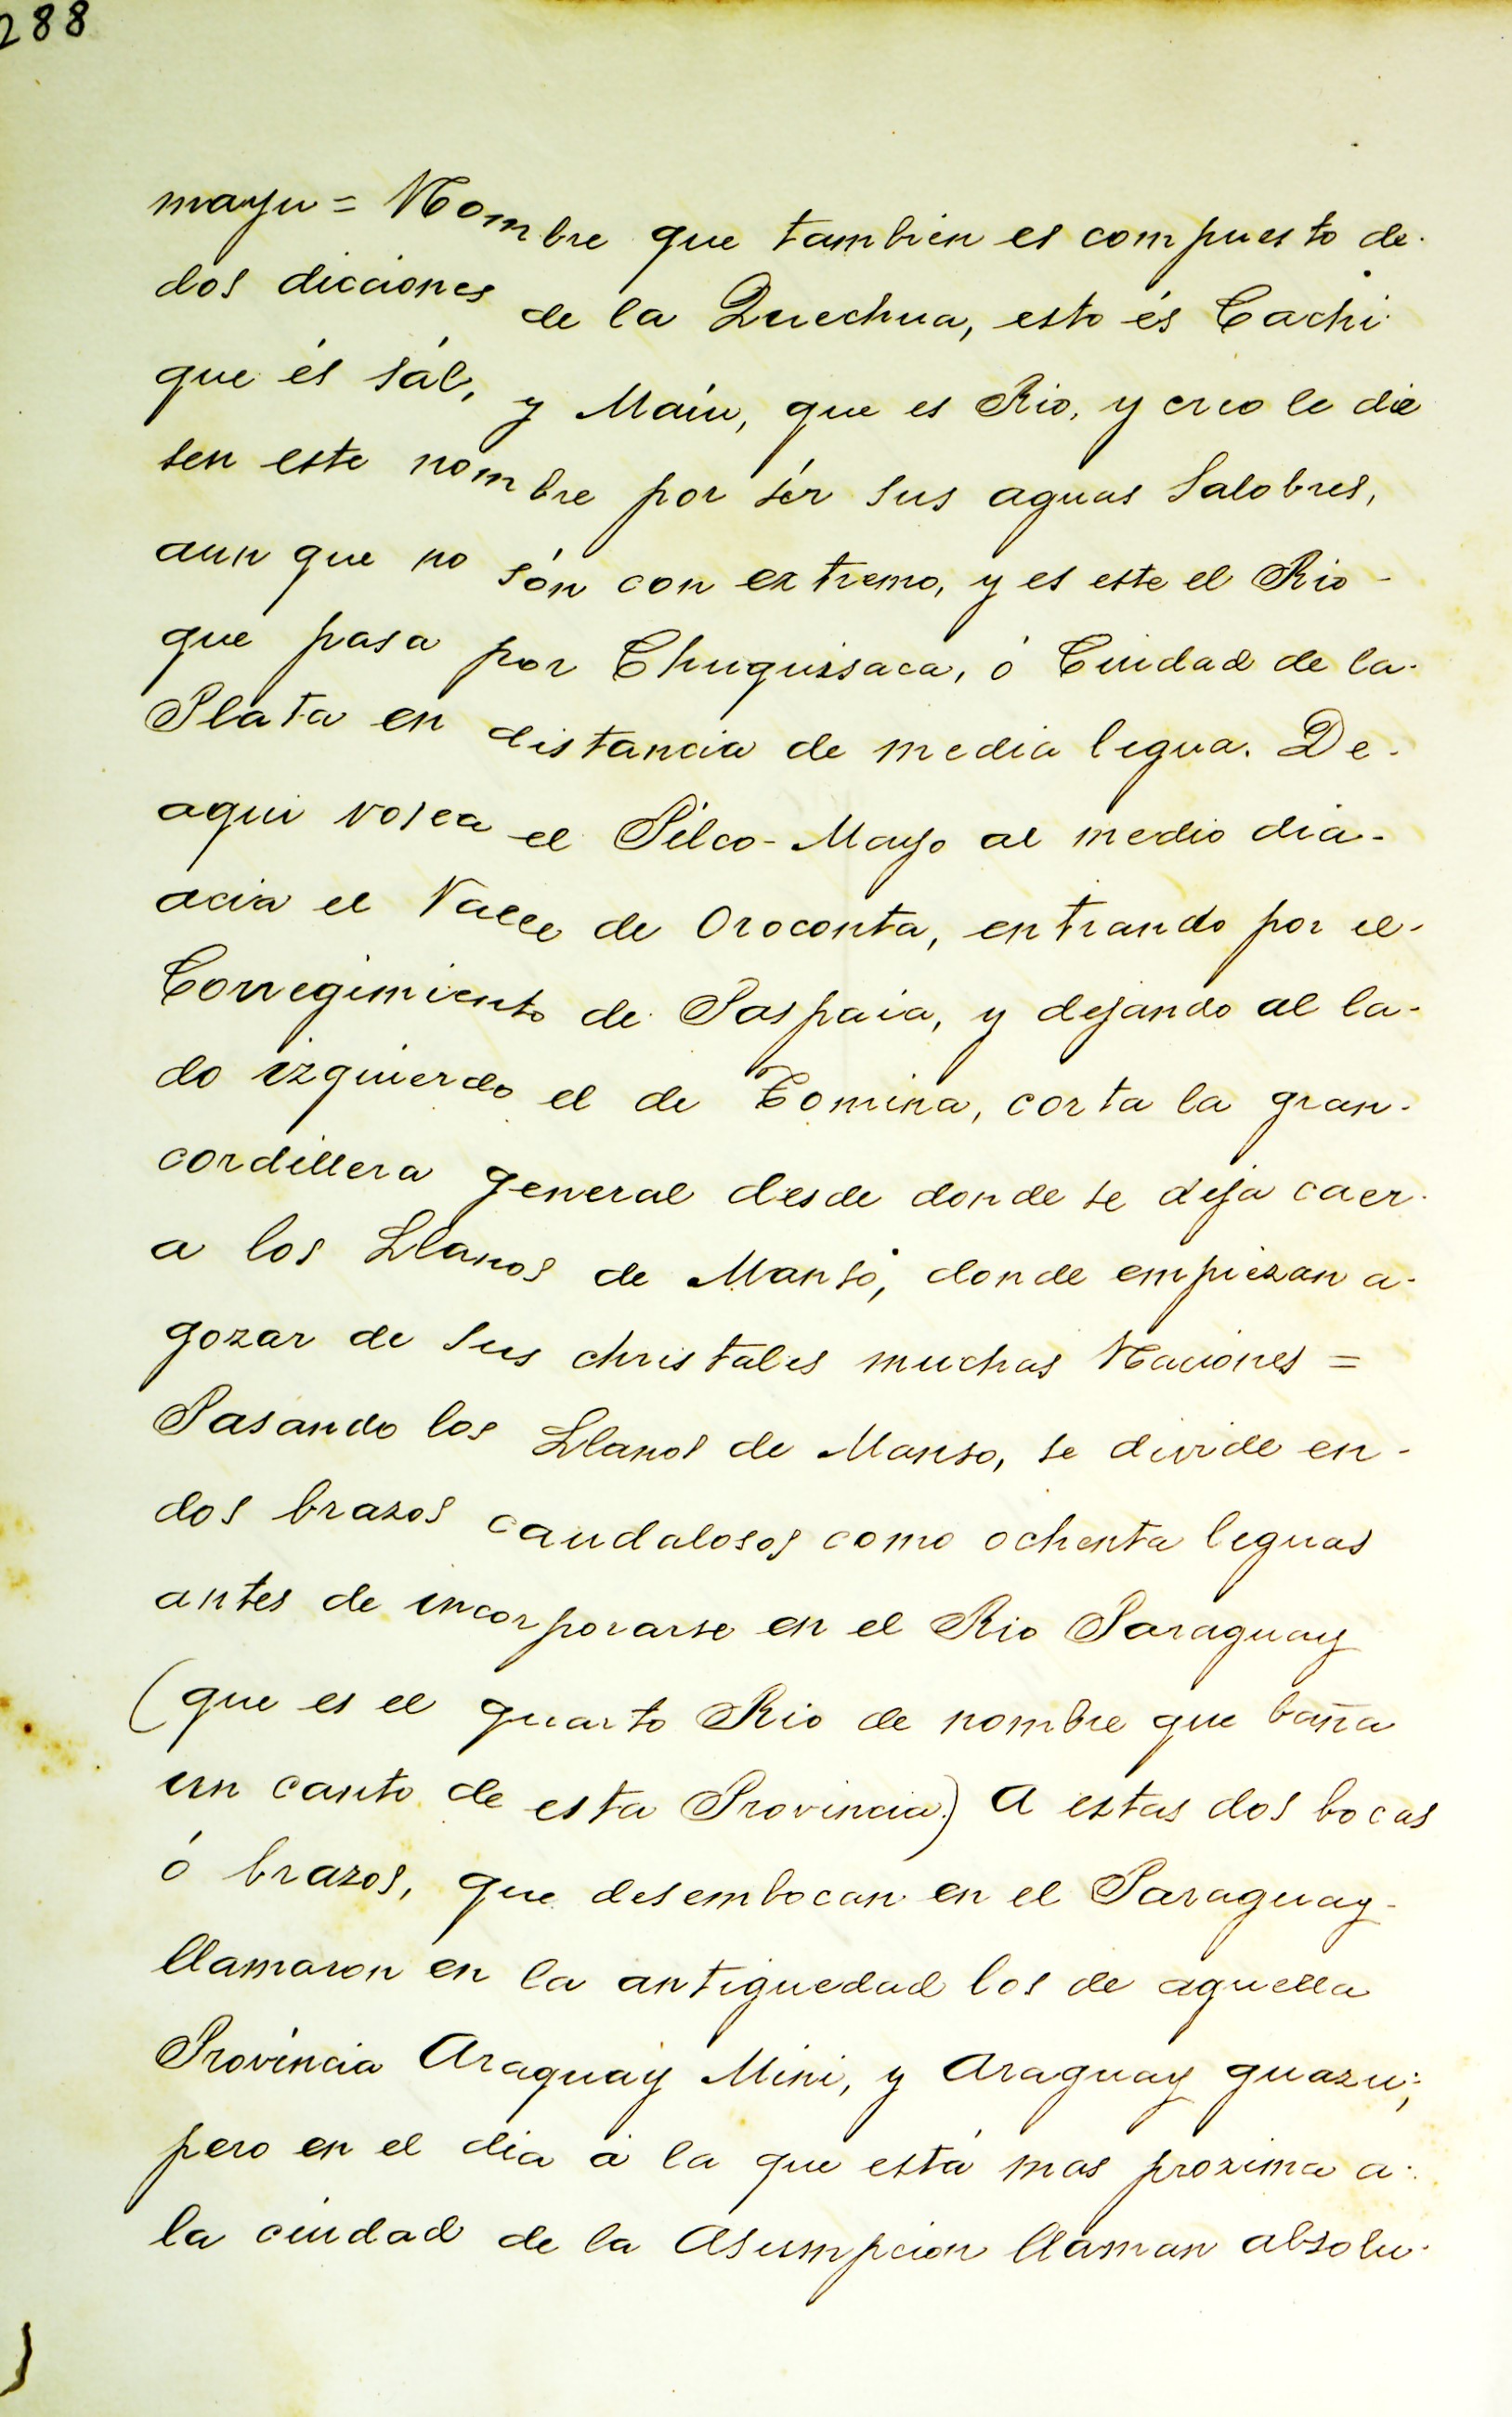 288
mayu = Nombre que tambien es compuesto de
dos dicciones de la Quechua, esto és Cachi
que és sál, y Maíu, que es Rio, y creo le die
sen este nombre por sér sus aguas Salobres,
aun que no són con extremo, y es este el Rio -
que pasa por Chuquissaca, ó Ciudad de la
Plata en distancia de media legua. De
aqui vosea el Pilco-Mayo al medio dia
acia el Valle de Oroconta, entrando por el
Corregimiento de Paspaia, y dejando al la-
do izquierdo el de Tomina, corta la gran
cordillera general desde donde se deja caer
a los Llanos de Mansó, donde empiezan a
gozar de sus christales muchas Naciones =
Pasando los Llanos de Manso, se divide en
dos brazos caudalosos como ochenta leguas
antes de incorporarse en el Rio Paraguay
(que es el quarto Rio de nombre que baña
un canto de esta Provincia.) A estas dos bocas
ó brazos, que desembocan en el Paraguay
llamaron en la antiguedad los de aquella
Provincia Araguay Mini, y Araguay guazu;
pero en el dia á la que está mas proxima a
la ciudad de la Asumpcion llaman absolu-